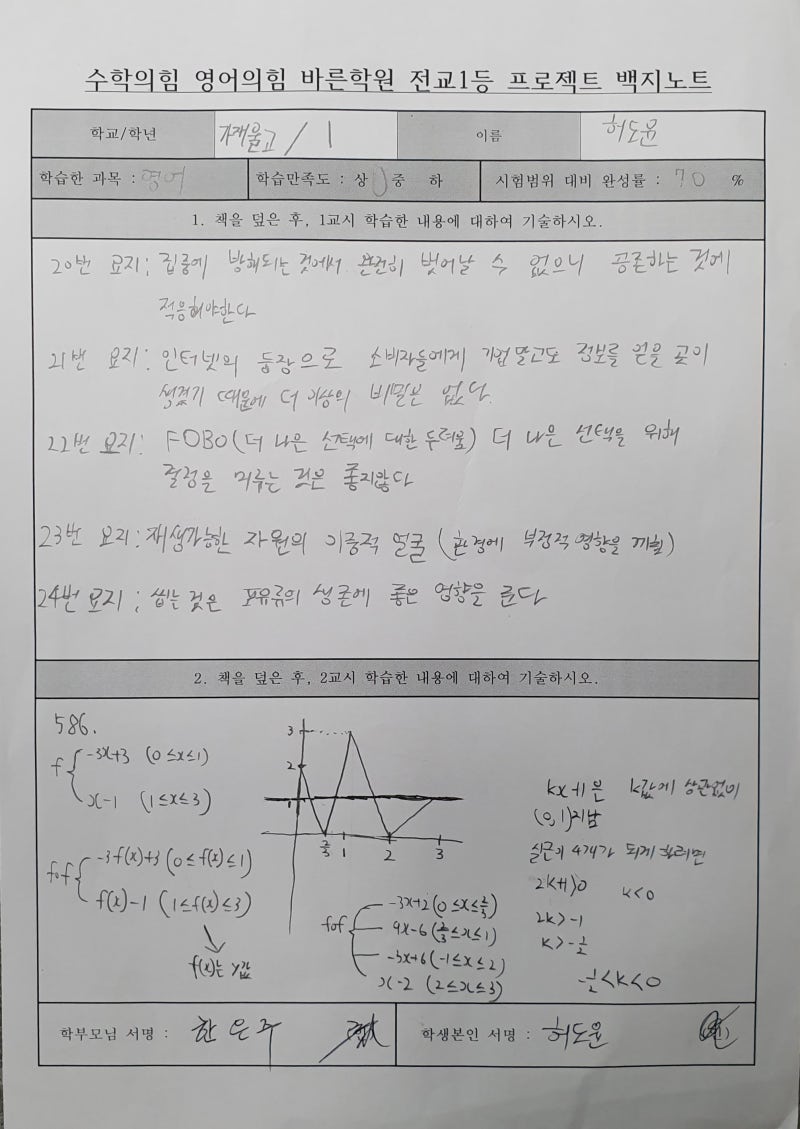 수학의힘 영어의힘 바른학원 전교1등 프로젝트 백지노트
학교/학년 가재울고 / 1 이름 허도윤
학습한 과목 : 영어 학습만족도 : 상 중 하 시험범위 대비 완성률 : 70 %
1. 책을 덮은 후, 1교시 학습한 내용에 대하여 기술하시오.
20번 요지; 집중에 방해되는 것에서 완전히 벗어날 수 없으니 공존하는 것에
적응해야한다
21번 요지: 인터넷의 등장으로 소비자들에게 기업 말고도 정보를 얻을 곳이
생겼기 때문에 더 이상의 비밀은 없다.
22번 요지: FOBO(더 나은 선택에 대한 두려움) 더 나은 선택을 위해
결정을 미루는 것은 좋지않다
23번 요지: 재생가능한 자원의 이중적 얼굴 (환경에 부정적 영향을 끼침)
24번 요지; 씹는 것은 포유류의 생존에 좋은 영향을 준다
2. 책을 덮은 후, 2교시 학습한 내용에 대하여 기술하시오.
586.
f { -3x+3 (0≤x≤1)
x-1 (1≤x≤3)
fof { -3f(x)+3 (0≤f(x)≤1)
f(x)-1 (1≤f(x)≤3)
f(x)는 y값
3
2
1
2/3 1 2 3
fof { -3x+2 (0≤x≤2/3)
9x-6 (2/3≤x≤1)
-3x+6 (-1≤x≤2)
x-2 (2≤x≤3)
kx+1은 k값에 상관없이
(0,1)지남
실근이 4개가 되게 하려면
2k+1>0 k<0
2k>-1
k>-1/2
-1/2<k<0
학부모님 서명 : 한은주 학생본인 서명 : 허도윤 (인)